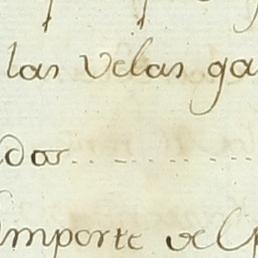 las velas ga
dos
importe del p